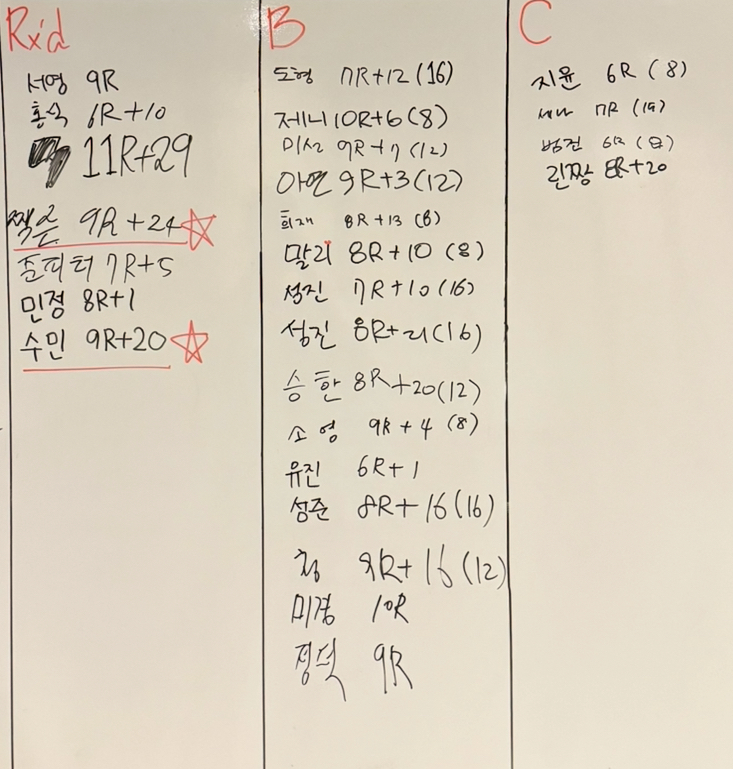 Rx'd
서영 9R
홍식 6R+10
11R+29
짹슨 9R+24
준피터 7R+5
민정 8R+1
수민 9R+20
B
도형 7R+12 (16)
제니 10R+6 (8)
미선 9R+7 (12)
아연 9R+3 (12)
희재 8R+13 (8)
말리 8R+10 (8)
석진 7R+10 (16)
성진 8R+21 (16)
승한 8R+20 (12)
소영 9R+4 (8)
유진 6R+1
성준 8R+16 (16)
청 9R+16 (12)
미경 10R
정석 9R
C
지윤 6R (8)
세나 7R
범건 6R (8)
린짱 8R+20